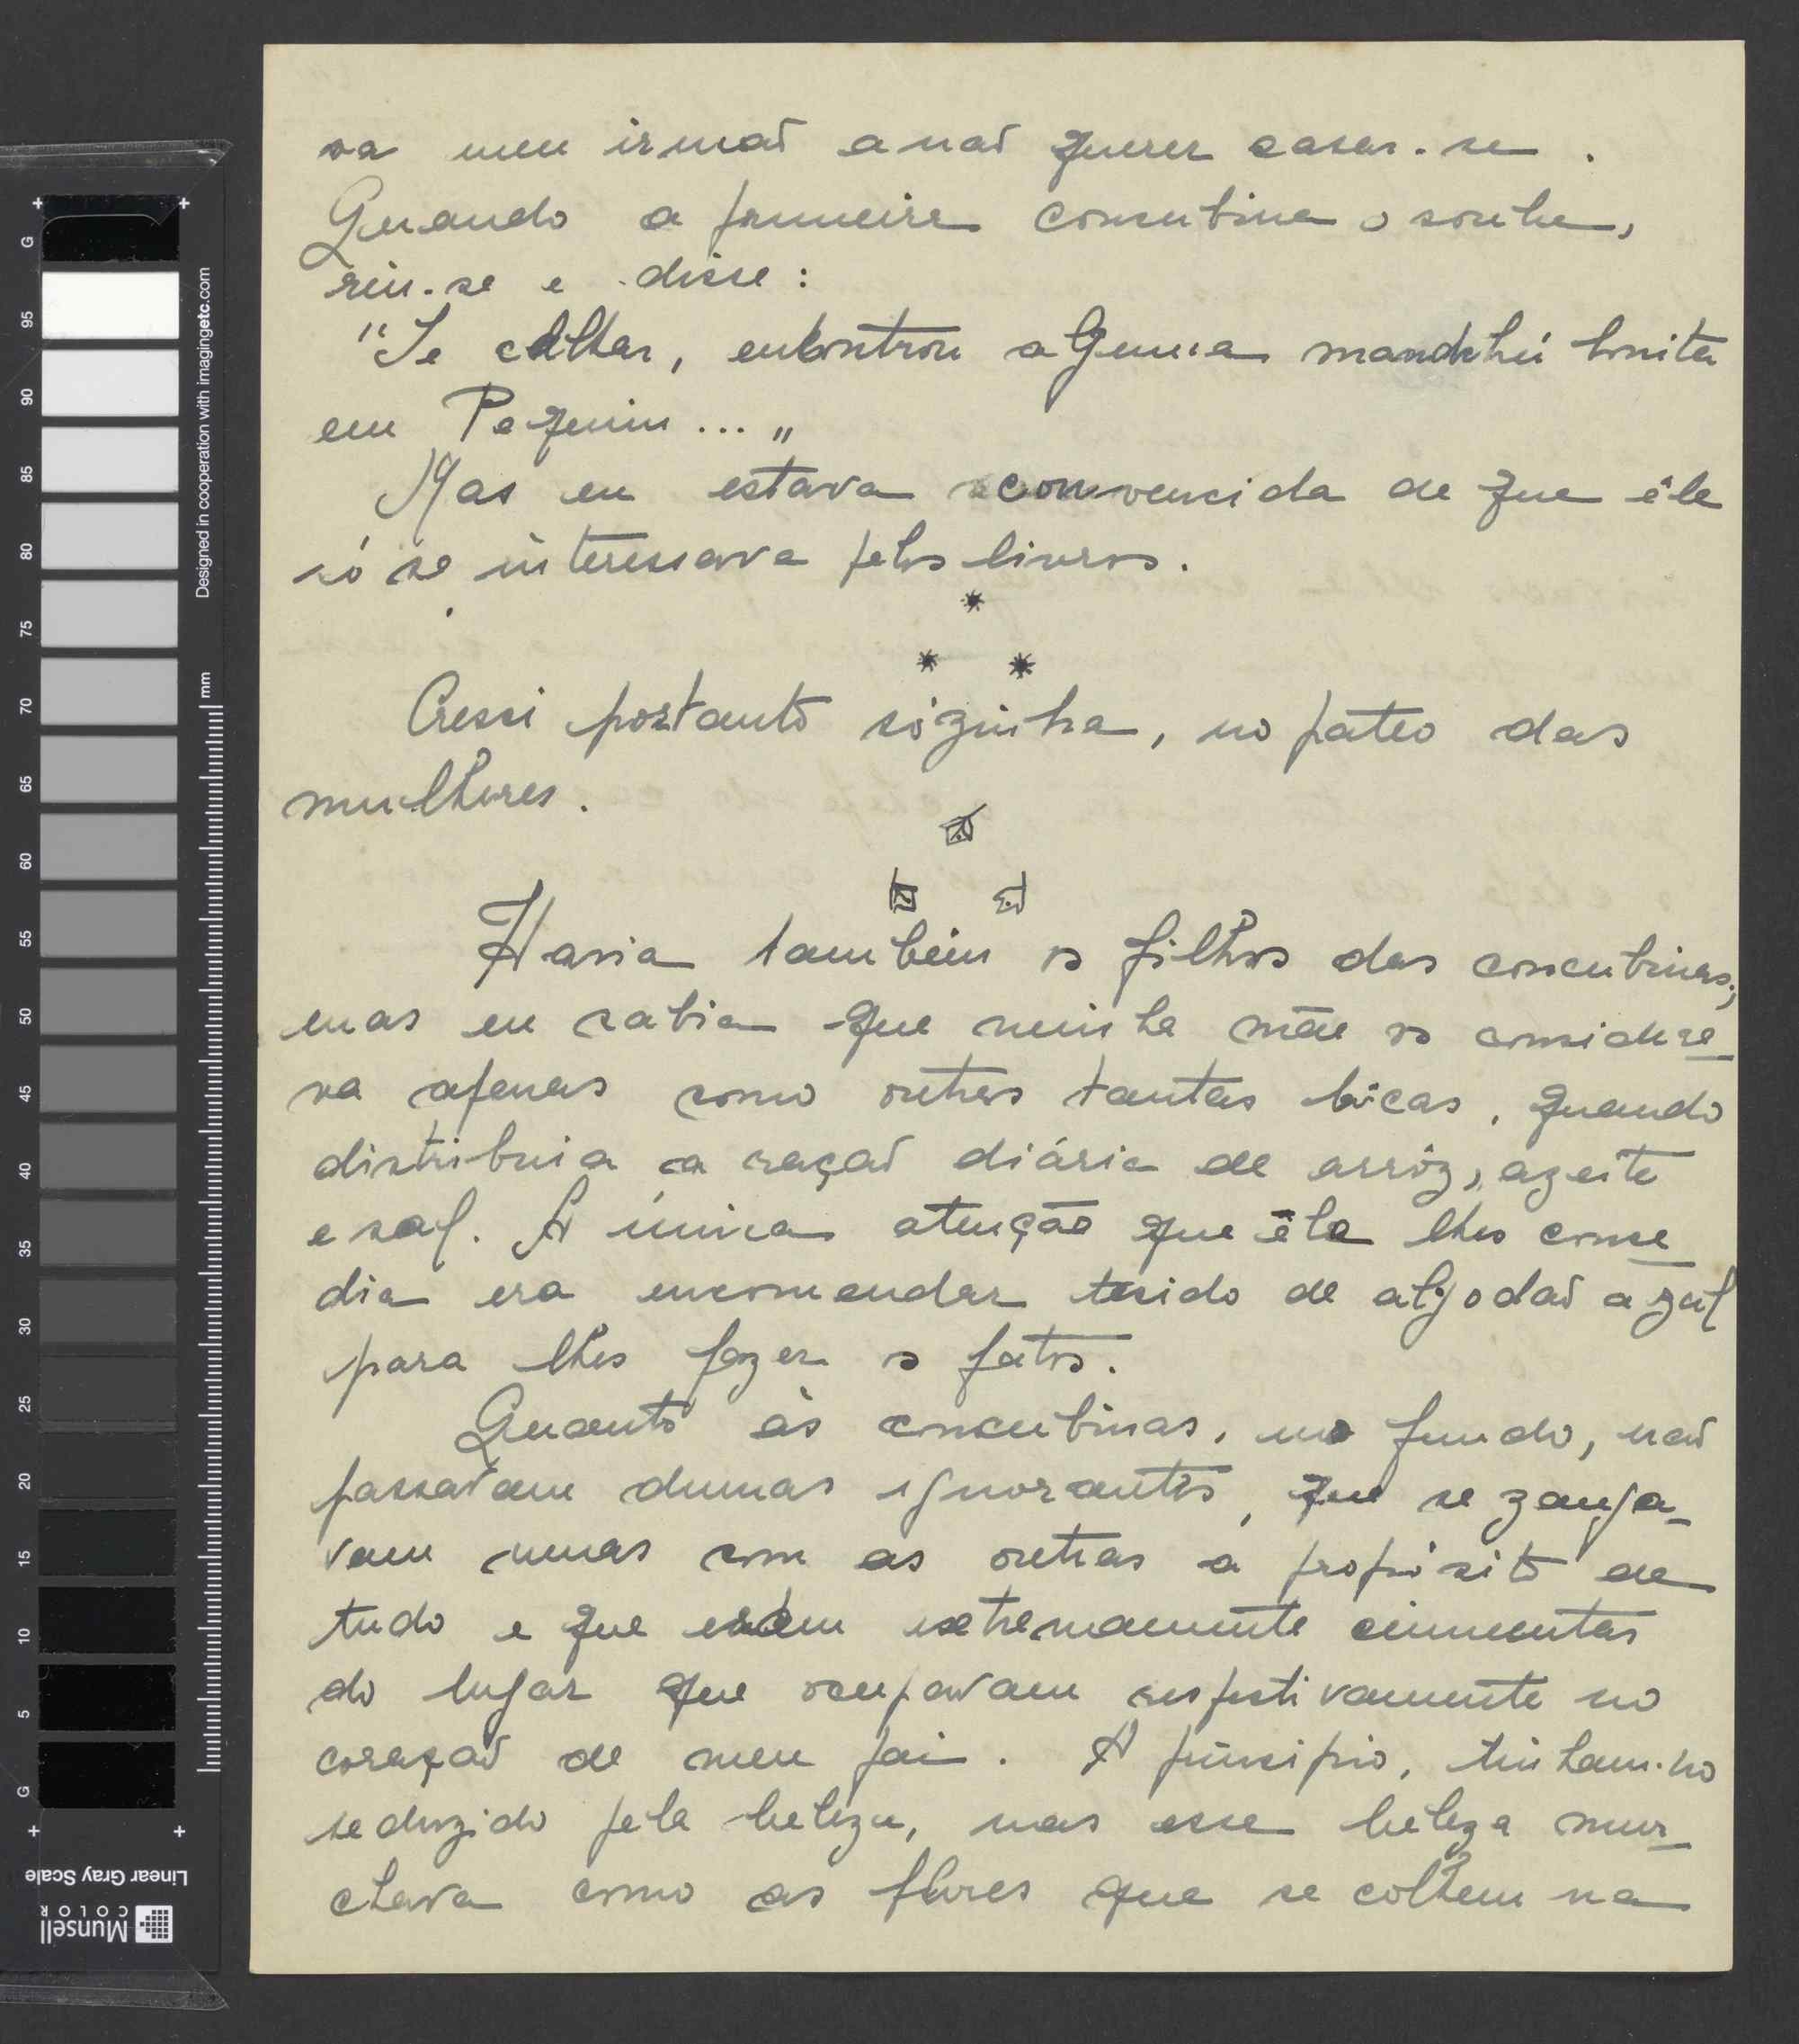 va meu irmaõ a naõ querer casar-se.
Quando a primeira concubina o soube,
riu-se e disse:
"Se calhar, encontrou alguma mandchú bonita
em Pequim... "
Mas eu estava convencida de que êle
só se interessava pelos livros.
*
* *
Cresci portanto sòzinha, no páteo das
mulheres.
Havia também os filhos das concubinas;
mas eu sabia que minha mãe os considera-
va apenas como outras tantas bôcas, quando
distribuia a raçaõ diária de arrôz, azeite
e sal. A única atenção que ela lhes conce-
dia era encomendar tecido de algodaõ azul
para lhes fazer os fatos.
Quanto às concubinas, no fundo, naõ
passavam dumas ignorantes, que se zanga-
vam umas com as outras a propósito de
tudo e que eram extremamente ciumentas
do lugar que ocupavam respectivamente no
coraçaõ de meu pai. A principio, tinham-no
seduzido pela beleza, mas essa beleza mur-
chava como as flores que se colhem na
Designed in cooperation with imagingetc.com
mm
G
95
90
85
80
75
70
65
60
55
50
45
40
35
30
25
20
15
10
5
G
Linear Gray Scale
Munsell
COLOR